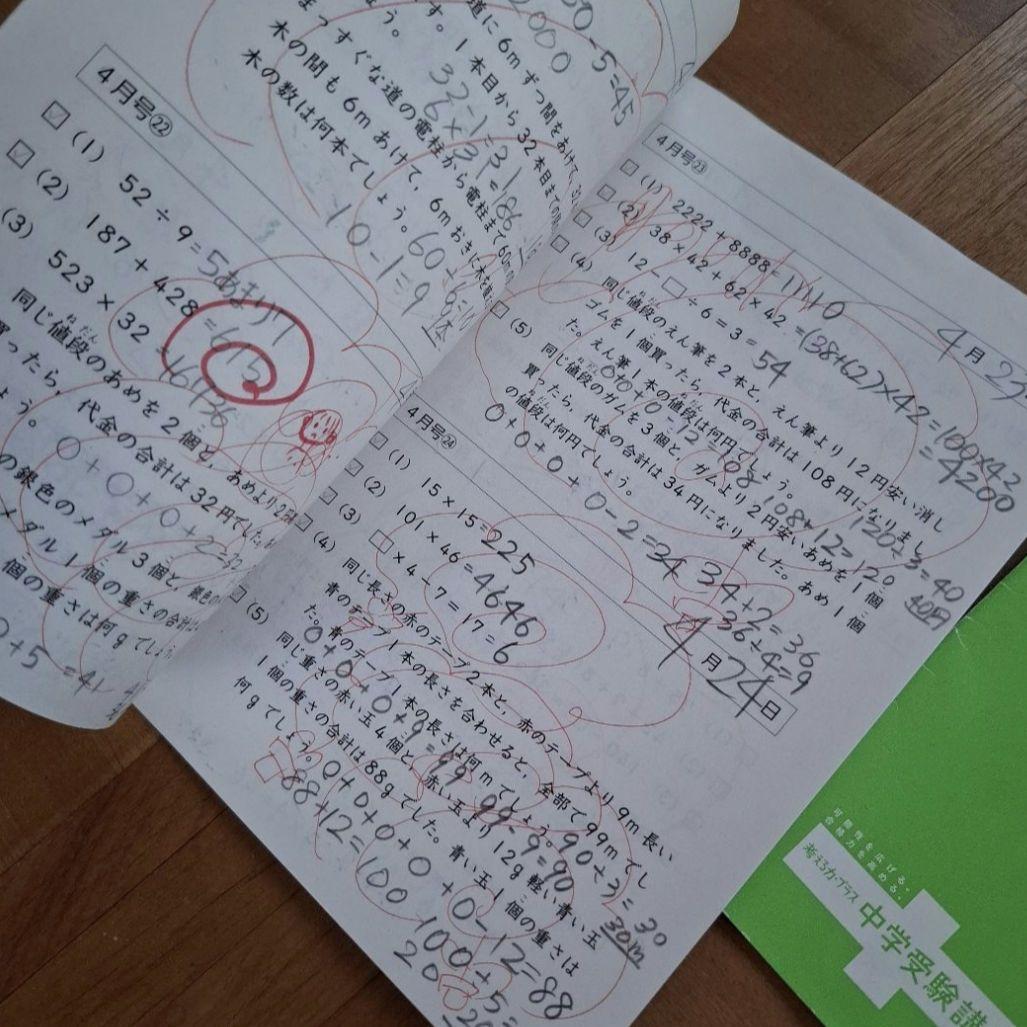 2000
50-5=45
道に6mずつ間をあけて,
す。1本目から32本目までの間
ょう。
32-1=31
6×31=186
まっすぐな道の電柱から電柱まで60m
木の間も6mあけて,6mおきに木を
木の数は何本でしょう。60÷6=10
10-1=9
4月号㉒
(1) 52÷9=5あまり7
(2) 187+428=615
(3) 523×32
同じ値段のあめを2個と,あめより2
買ったら,代金の合計は32円でした
ょう。
0+0+0+2=32
の銀色のメダル3個と,銀色の
メダル1個の重さの合計
個の重さは何gでしょ
0+5=41
4月号㉓
4月23
(1) 2222+8888=11110
(2) 38×42+62×42=(38+62)×42=100×42
=4200
(3) 12-□÷6=3 54
(4) 同じ値段のえん筆を2本と,えん筆より12円安い消し
ゴムを1個買ったら,代金の合計は108円になりまし
た。えん筆1本の値段は何円でしょう。
0+0+0-12=108 108+12=120
120÷3=40
40円
(5) 同じ値段のガムを3個と,ガムより2円安いあめを1個
買ったら,代金の合計は34円になりました。あめ1個
の値段は何円でしょう。
0+0+0+0-2=34 34+2=36
36÷4=9
4月号㉔
4月24日
(1) 15×15=225
(2) 101×46=4646
(3) □×4-7=17=6
(4) 同じ長さの赤のテープ2本と,赤のテープより9m長い
青のテープ1本の長さを合わせると,全部で99mでし
た。青のテープ1本の長さは何mでしょう。
0+0+0+9=99 99-9=90 90÷3=30
30m
(5) 同じ重さの赤い玉4個と,赤い玉より12g軽い青い玉
1個の重さの合計は88gでした。青い玉1個の重さは
何gでしょう。
0+0+0+0+0-12=88
88+12=100 100÷5=
20
可能性を広げる、
合格力を高める。
考える力・プラス
中学受験講